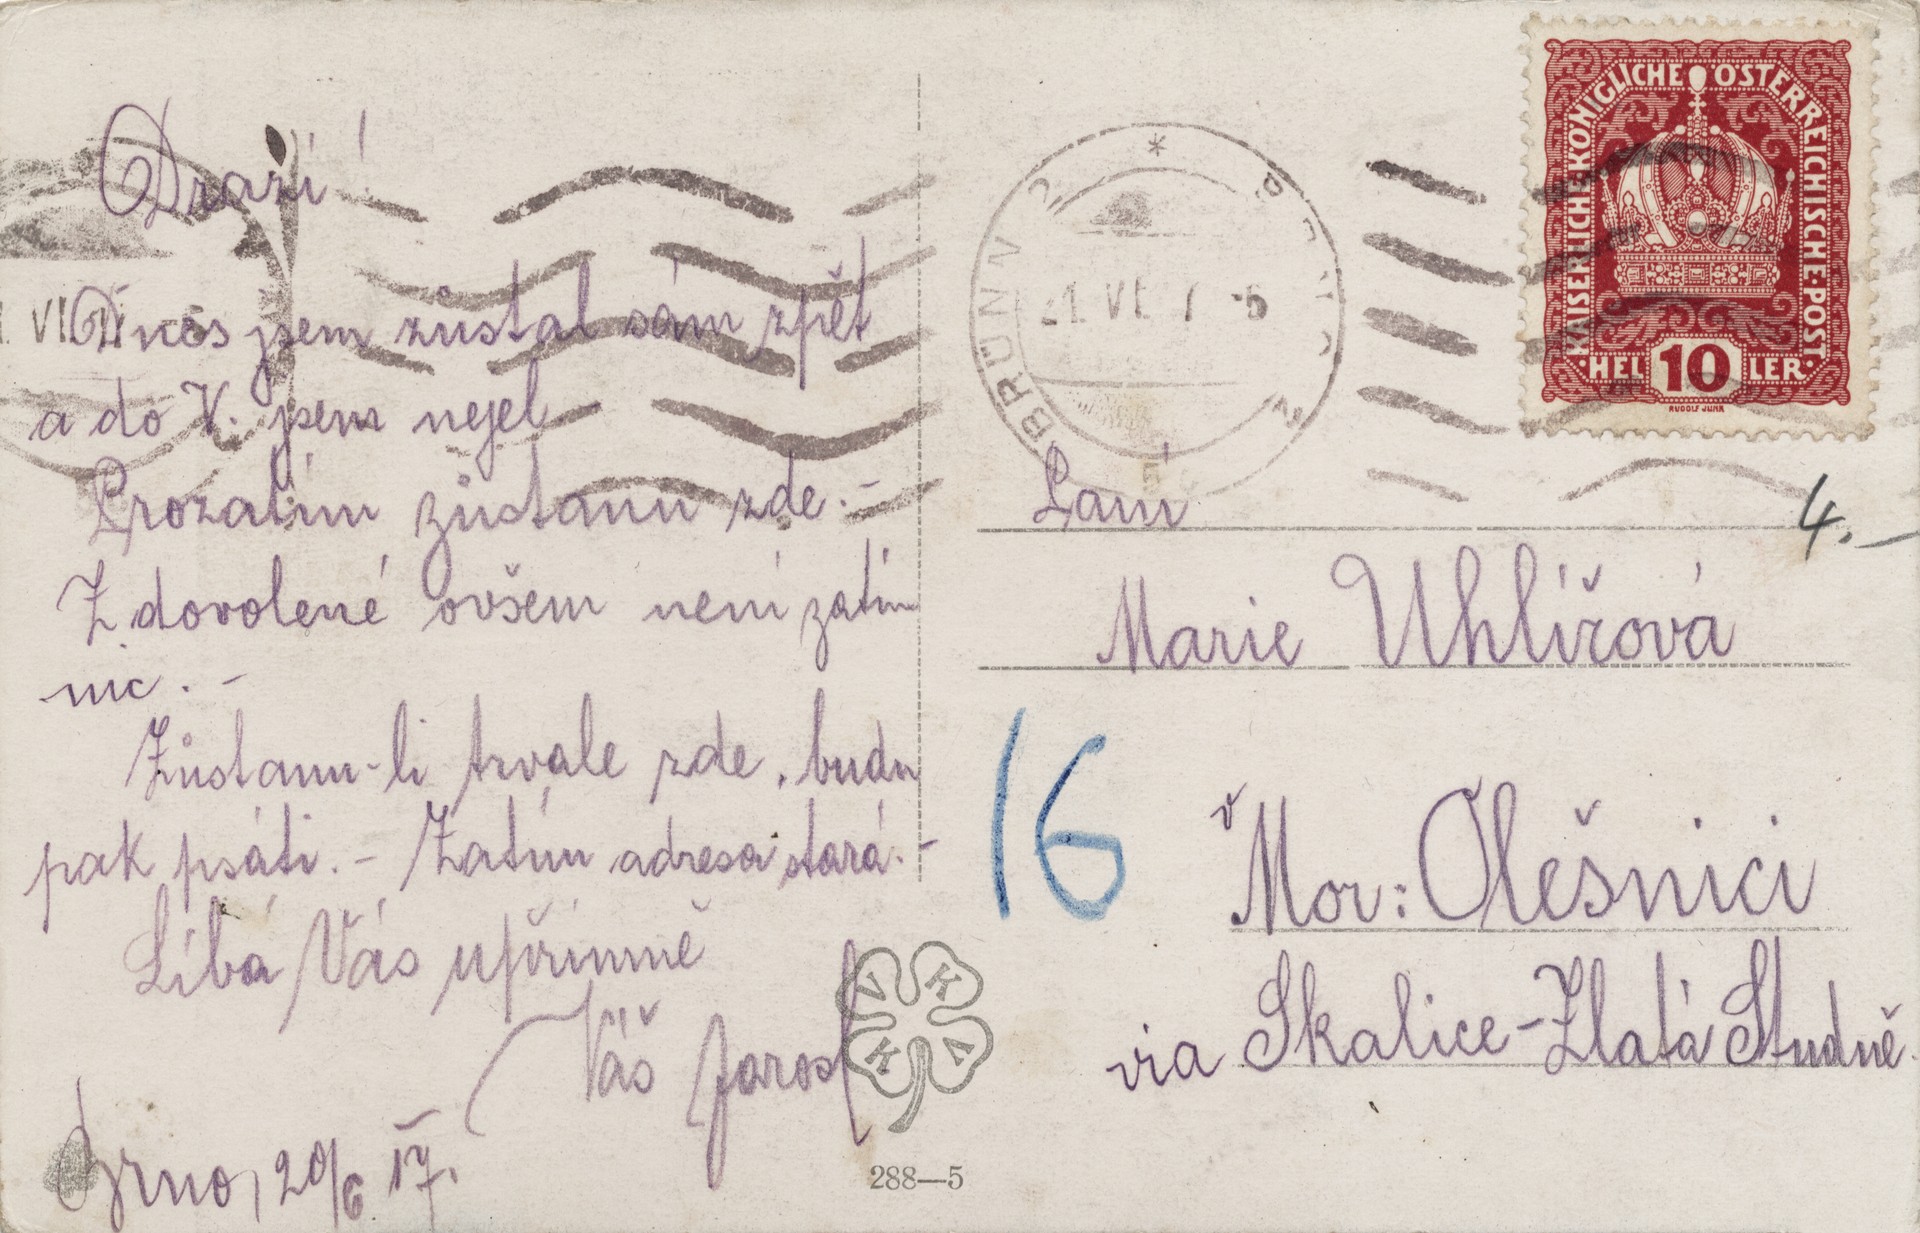 Drazí!
Dnes jsem zůstal sám zpět
a do V. jsem nejel
Prozatím zůstanu zde.-
Z dovolené ovšem není zatím
nic.-
Zůstanu-li trvale zde, budu
pak psáti.- Zatím adresa stará.-
Líbá Vás upřímně
Váš Jarosl
Brno, 20/6 17.
288—5
BRÜNN 2
21. VI. 17 -5
KAISERLICHE·KÖNIGLICHE ÖSTERREICHISCHE·POST·
HEL 10 LER
RUDOLF JUNK
4.-
Paní
Marie Uhlířová
16
v Mor: Olešnici
via Skalice-Zlatá Studně.
VKKV